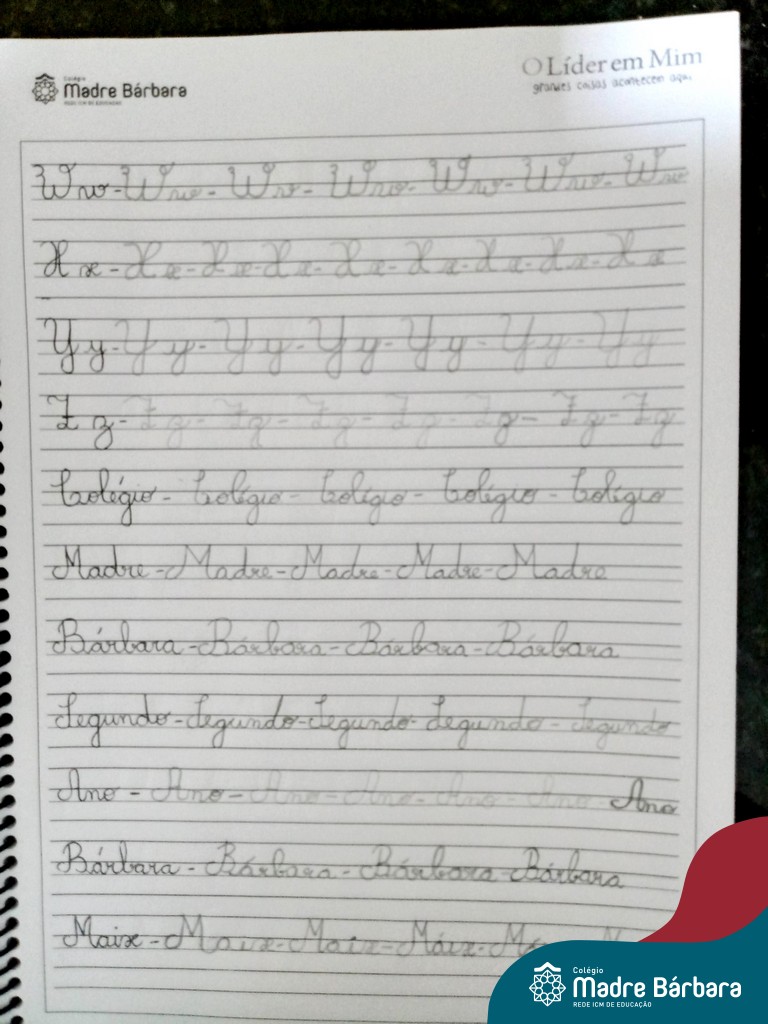 Colégio
Madre Bárbara
REDE ICM DE EDUCAÇÃO
O Líder em Mim
grandes coisas acontecem aqui.
W w - W w - W w - W w - W w - W w - W w
X x - X x - X x - X x - X x - X x - X x - X x - X x
Y y - Y y - Y y - Y y - Y y - Y y - Y y
Z z - Z z - Z z - Z z - Z z - Z z - Z z - Z z
Colégio - Colégio - Colégio - Colégio - Colégio
Madre - Madre - Madre - Madre - Madre
Bárbara - Bárbara - Bárbara - Bárbara
Segundo - Segundo - Segundo - Segundo - Segundo
Ano - Ano - Ano - Ano - Ano - Ano - Ano
Bárbara - Bárbara - Bárbara - Bárbara
Maix - Maix - Maix - Máix -
Colégio
Madre Bárbara
REDE ICM DE EDUCAÇÃO